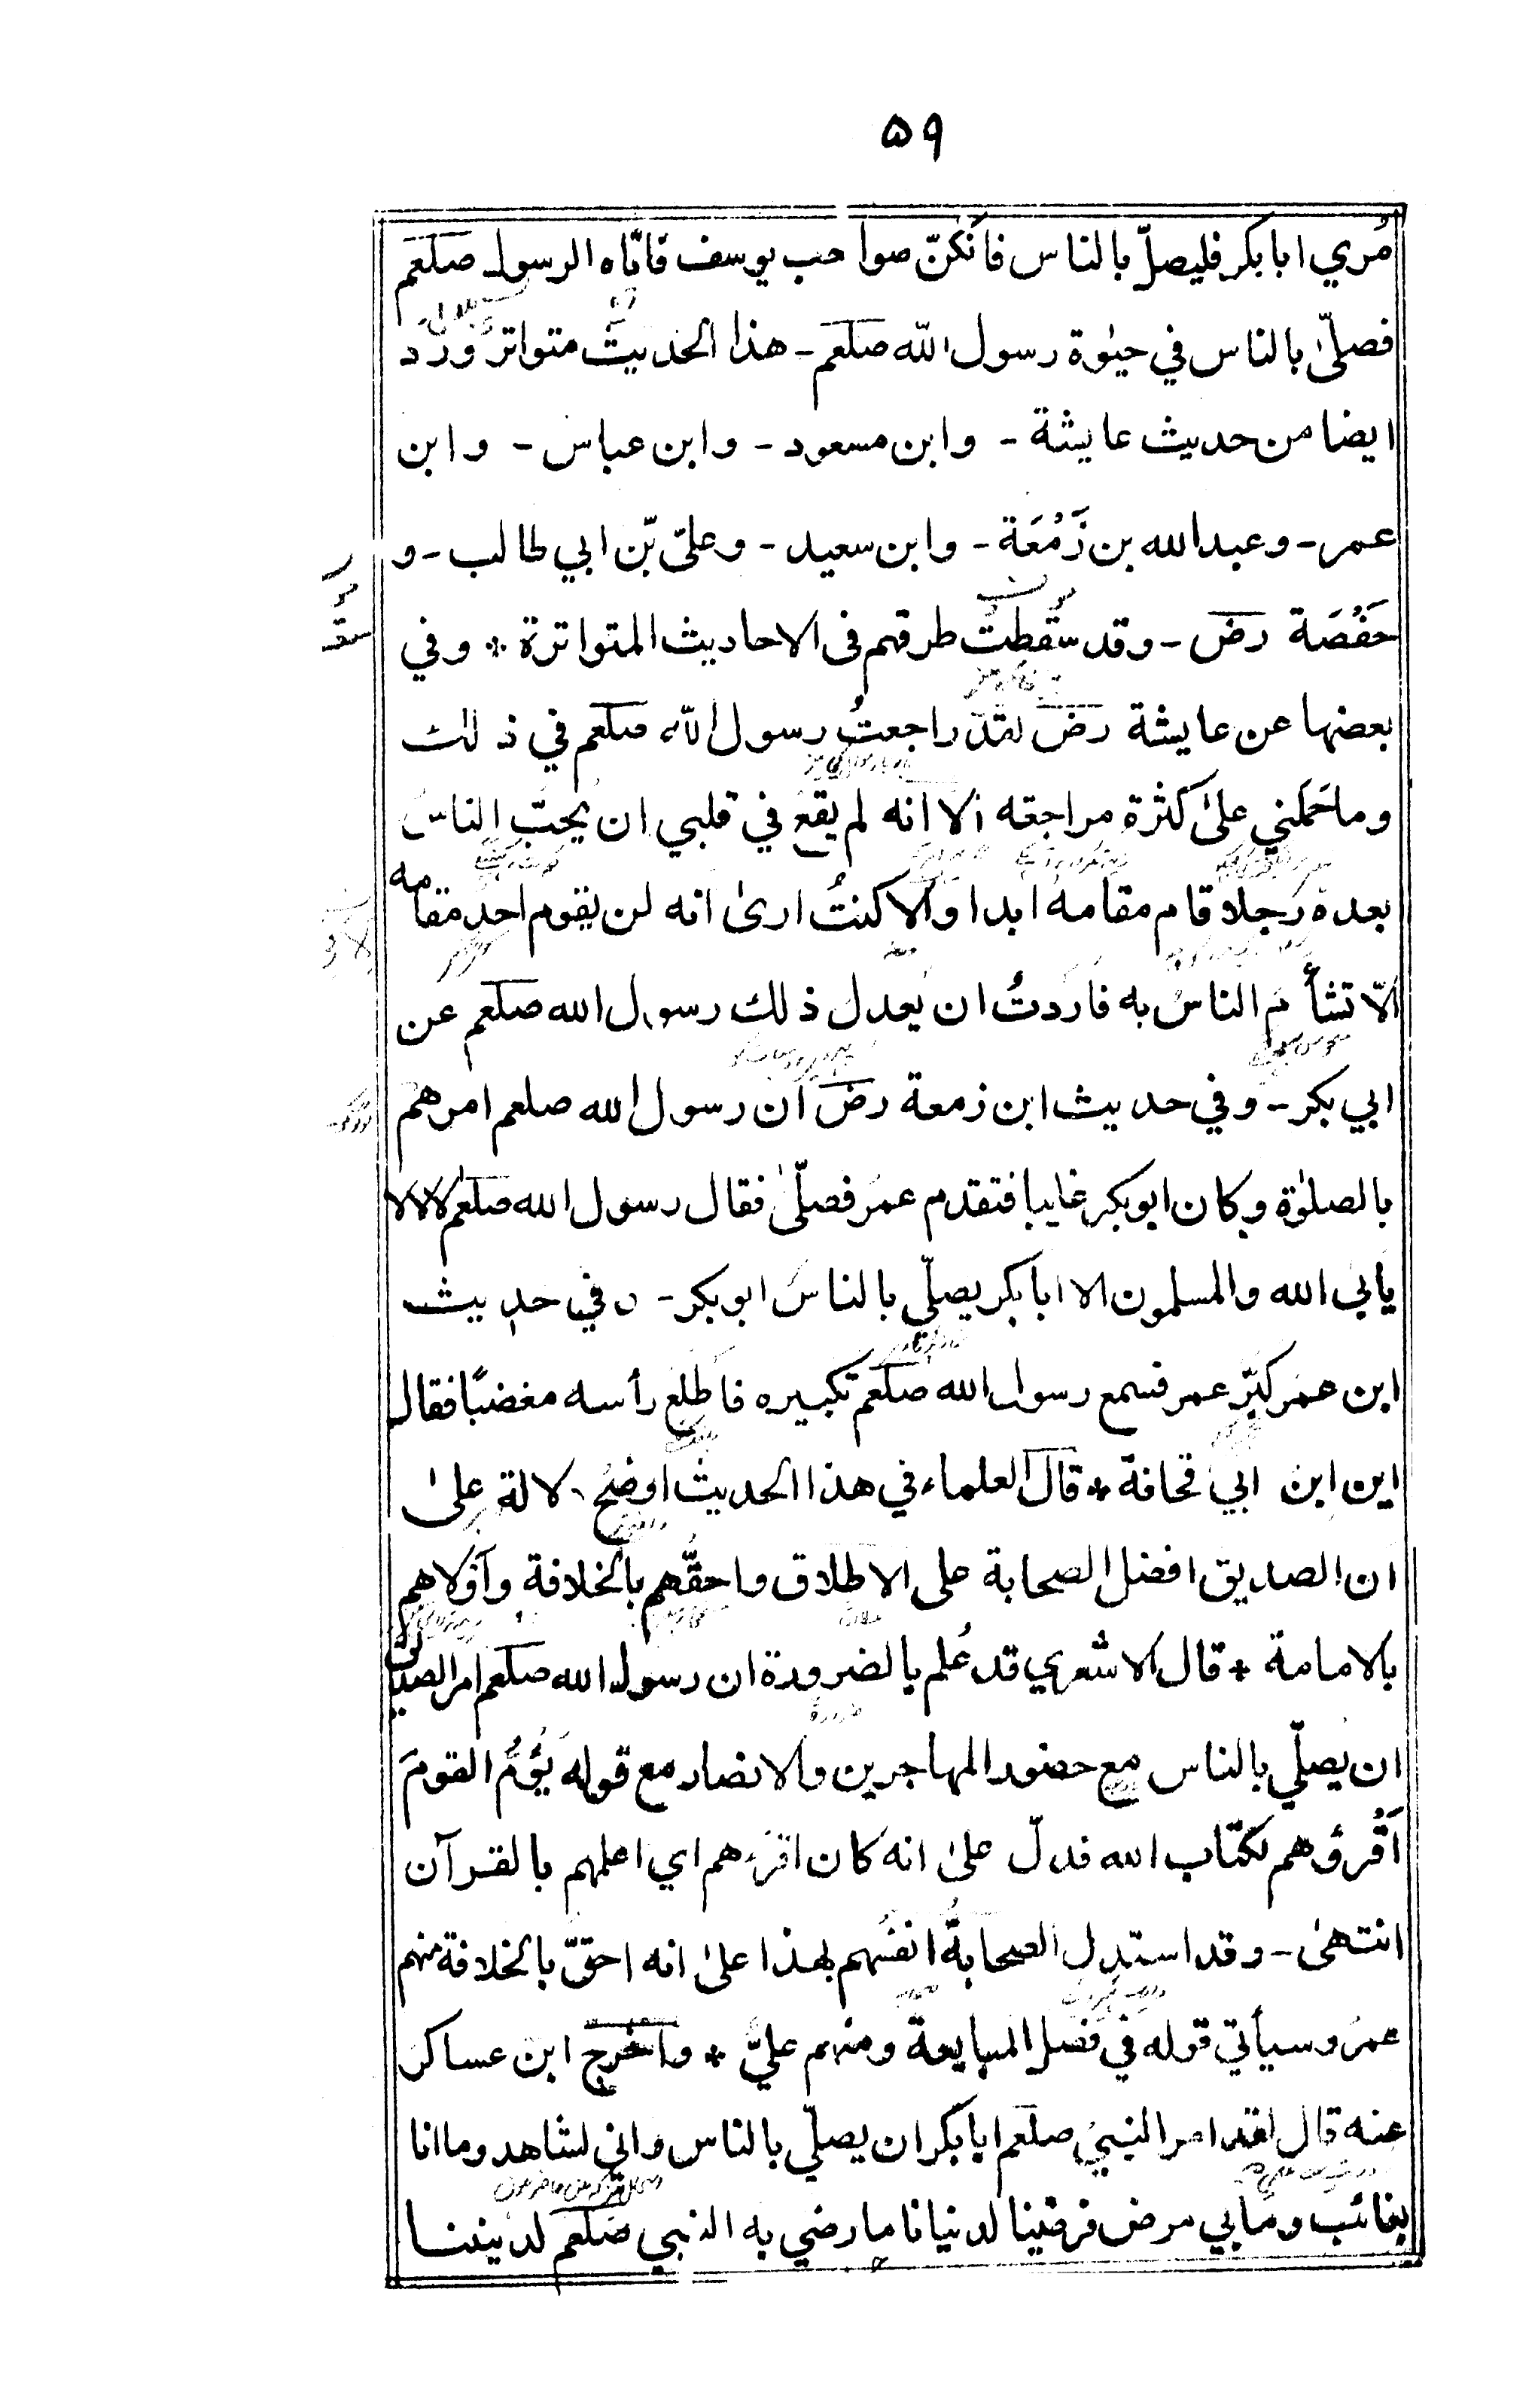 ۵۹
مُري ابا بكر فليصلّ بالناس فانكنّ صواحب يوسف فاتاه الرسول صلعم
فصلّىٰ بالناس في حيٰوة رسول اللّه صلعم - هذا الحديث متواتر وَرَدَ
ايضا من حديث عايشة - وابن مسعود - وابن عباس - وابن
عمر - وعبد الله بن زَمْعَة - وابن سعيد - وعليّ بن ابي طالب - و
حَفْصَة رض - وقد سُقْطتُ طرقهم فى الاحاديث المتواترة * وفي
بعضها عن عايشة رض لقد راجعتُ رسول اللّه صلعم في ذلك
وما حَمَلني علىٰ كثرة مراجعته الا انه لم يقع في قلبي ان يحبّ الناسُ
بعده رَجلا قام مقامه ابدا والا كنتُ ارىٰ انه لن يقوم احد مقامه
الّا تشأم الناسُ به فاردتُ ان يعدل ذلك رسول الله صلعم عن
ابي بكر - وفي حديث ابن زمعة رض ان رسول الله صلعم امرهم
بالصلوٰة وكان ابوبكر غايبا فتقدم عمرُ فصلّىٰ فقال رسول الله صلعم لا لا لا
يابى الله والمسلمون الا ابابكر يصلّي بالناس ابوبكر - وفي حديث
ابن عمر كبّر عمر فسمع رسول الله صلعم تكبيره فاطلع رأسه مغضبًا فقال
اين ابن ابي قحافة * قال العلماء في هذا الحديث اوضح دلالة علىٰ
ان الصديق افضل الصحابة على الاطلاق واحقّهم بالخلافة وَاَوْلاهم
بالامامة * قال الاشعري قد عُلم بالضرورة ان رسول الله صلعم امر الصديق
ان يصلّي بالناس مع حضور المهاجرين والانصار مع قوله يَؤُمُّ القومَ
اَقْرؤهم لكتاب الله فدلّ علىٰ انه كان اقرءهم اي اعلمهم بالقرآن
انتهىٰ - وقد استدل الصحابةُ انفسُهم بهذا علىٰ انه احقّ بالخلافة منهم
عمرُ وسيأتي قوله في فصل المبايعة ومنهم عليّ * واخرج ابن عساكر
عنه قال لقد امر النبيّ صلعم ابابكر ان يصلّي بالناس واني لشاهد وما انا
بغائب وما بي مرض فرضينا لدنيانا ما رضي به النبي صلعم لديننا